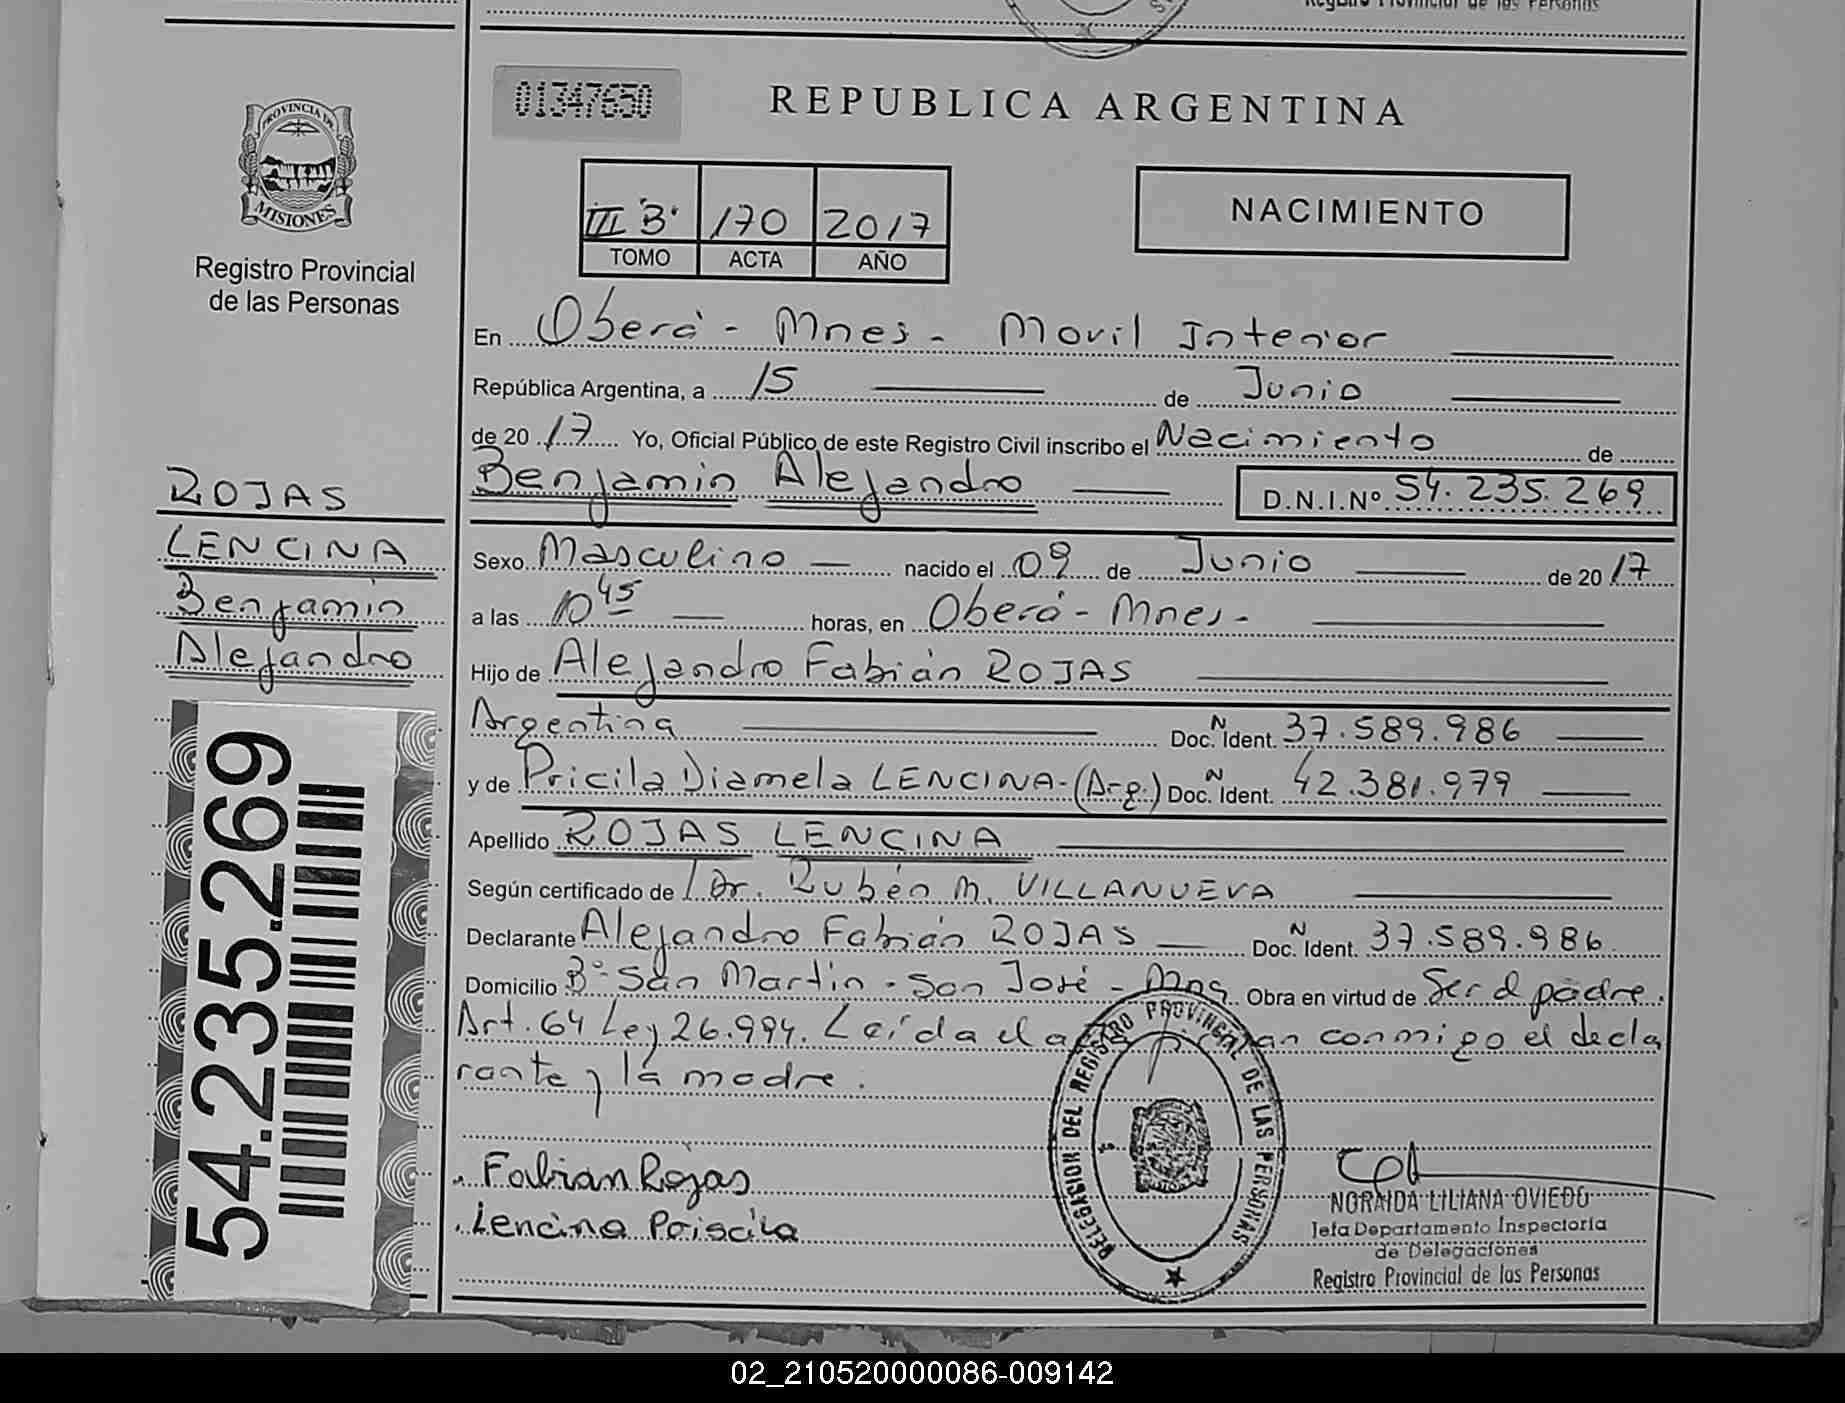 Registro Provincial de las Personas
01347650
REPUBLICA ARGENTINA
PROVINCIA DE
MISIONES
Registro Provincial
de las Personas
III "B" 170 2017
TOMO ACTA AÑO
NACIMIENTO
En Oberá - Mnes - Movil Interior
República Argentina, a 15 de Junio
de 2017 Yo, Oficial Público de este Registro Civil inscribo el Nacimiento de
Benjamin Alejandro D.N.I.Nº 54.235.269
ROJAS
LENCINA
Benjamin
Alejandro
Sexo Masculino nacido el 09 de Junio de 2017
a las 10 45 horas, en Oberá - Mnes -
Hijo de Alejandro Fabián ROJAS
Argentina Doc. N Ident. 37.589.986
y de Pricila Diamela LENCINA - (Arg.) Doc. N Ident. 42.381.979
Apellido ROJAS LENCINA
Según certificado de Dr. Rubén M. VILLANUEVA
Declarante Alejandro Fabián ROJAS Doc. N Ident. 37.589.986
Domicilio Bº San Martin - San José - Obra en virtud de Ser el padre.
Art. 64 Ley 26.994. Leída el conmigo el decla
rante y la madre.
54.235.269
DELEGACION DEL REGISTRO PROVINCIAL DE LAS PERSONAS
Fabian Rojas
Lencina Priscila
NORAIDA LILIANA OVIEDO
Jefa Departamento Inspectoria
de Delegaciones
Registro Provincial de las Personas
02_210520000086-009142